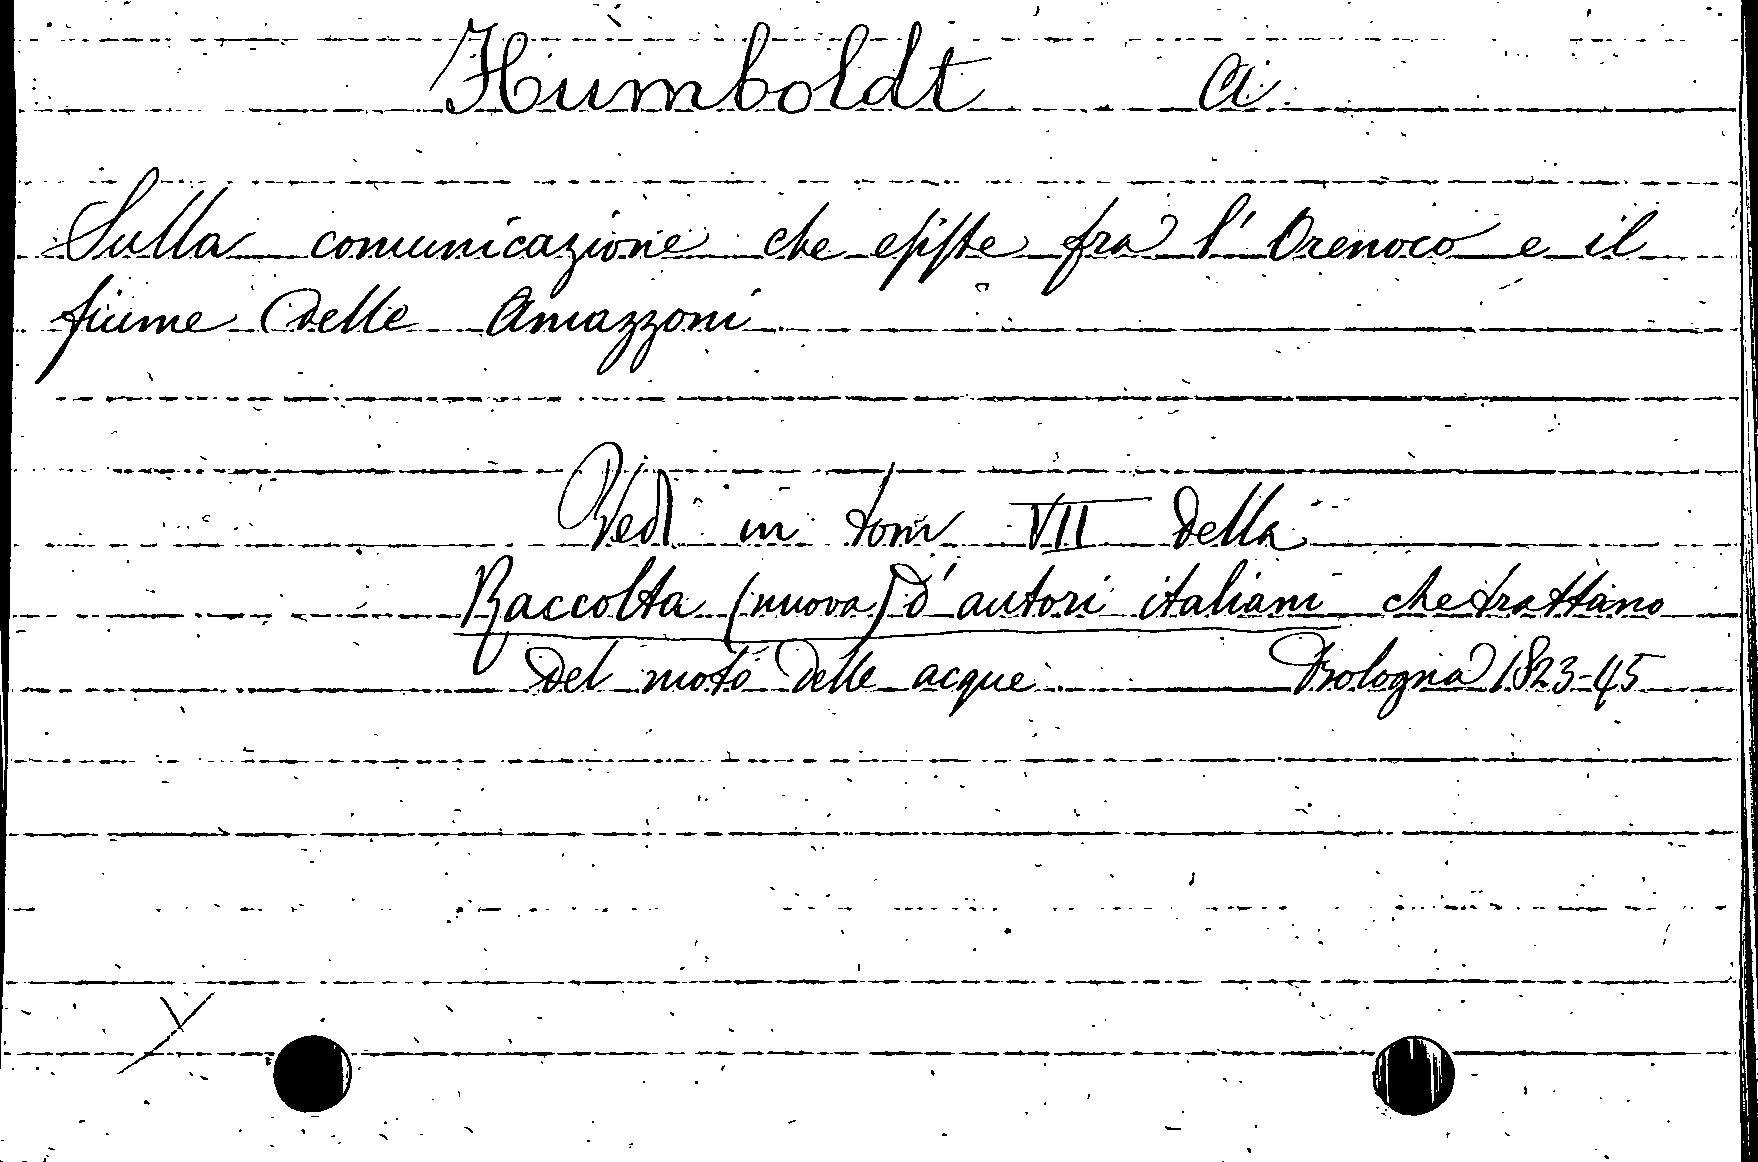 Humboldt A.
Sulla comunicazione che esiste fra l'Orenoco e il
fiume delle Amazzoni
Vedi in tom VII della
Raccolta (nuova) d'autori italiani che trattano
del moto delle acque Bologna 1823-45